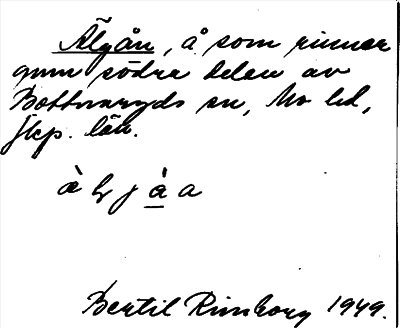 Älgån, å som rinner
gnm södra delen av
Bottnaryds sn, Mo hd,
Jkp. län.
Bertil Rimborg 1949.